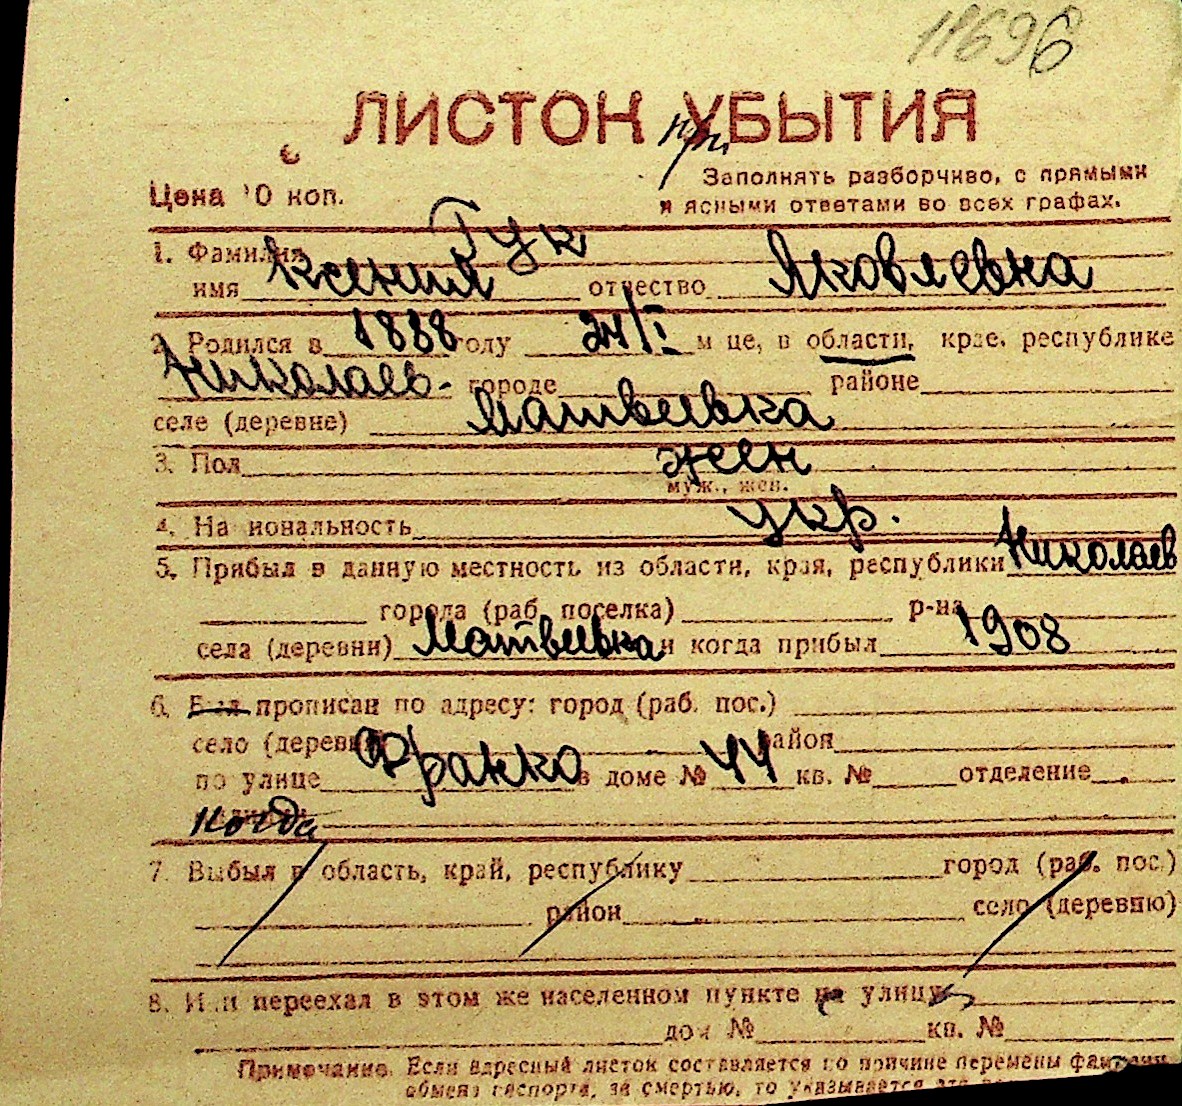 11696
ЛИСТОК УБЫТИЯ
при
Цена 10 коп.
Заполнять разборчиво, с прямыми
и ясными ответами во всех графах.
1. Фамилия Гук
имя Ксения отчество Яковлевна
2. Родился в 1888 году 24/I м-це, в области, крае, республике
Николаев- городе районе
селе (деревне) Матвеевка
3. Пол жен
муж., жен.
4. Национальность укр.
5. Прибыл в данную местность из области, края, республики Николаев
города (раб. поселка) р-на
села (деревни) Матвеевка и когда прибыл 1908
6. Был прописан по адресу: город (раб. пос.)
село (деревня) район
по улице Франко в доме № 44 кв. № отделение
милиции когда
7. Выбыл в область, край, республику город (раб. пос.)
район село (деревню)
8. Или переехал в этом же населенном пункте на улицу
дом № кв. №
Примечание. Если адресный листок составляется по причине перемены фамилии,
обмена паспорта, за смертью, то указывается эта